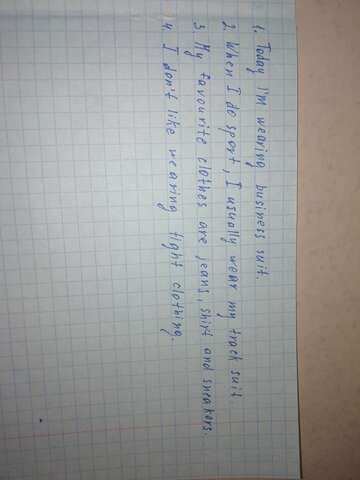 1. Today I'm wearing business suit.
2. When I do sport, I usually wear my track suit.
3. My favourite clothes are jeans, shirt and sneakers.
4. I don't like wearing tight clothing.